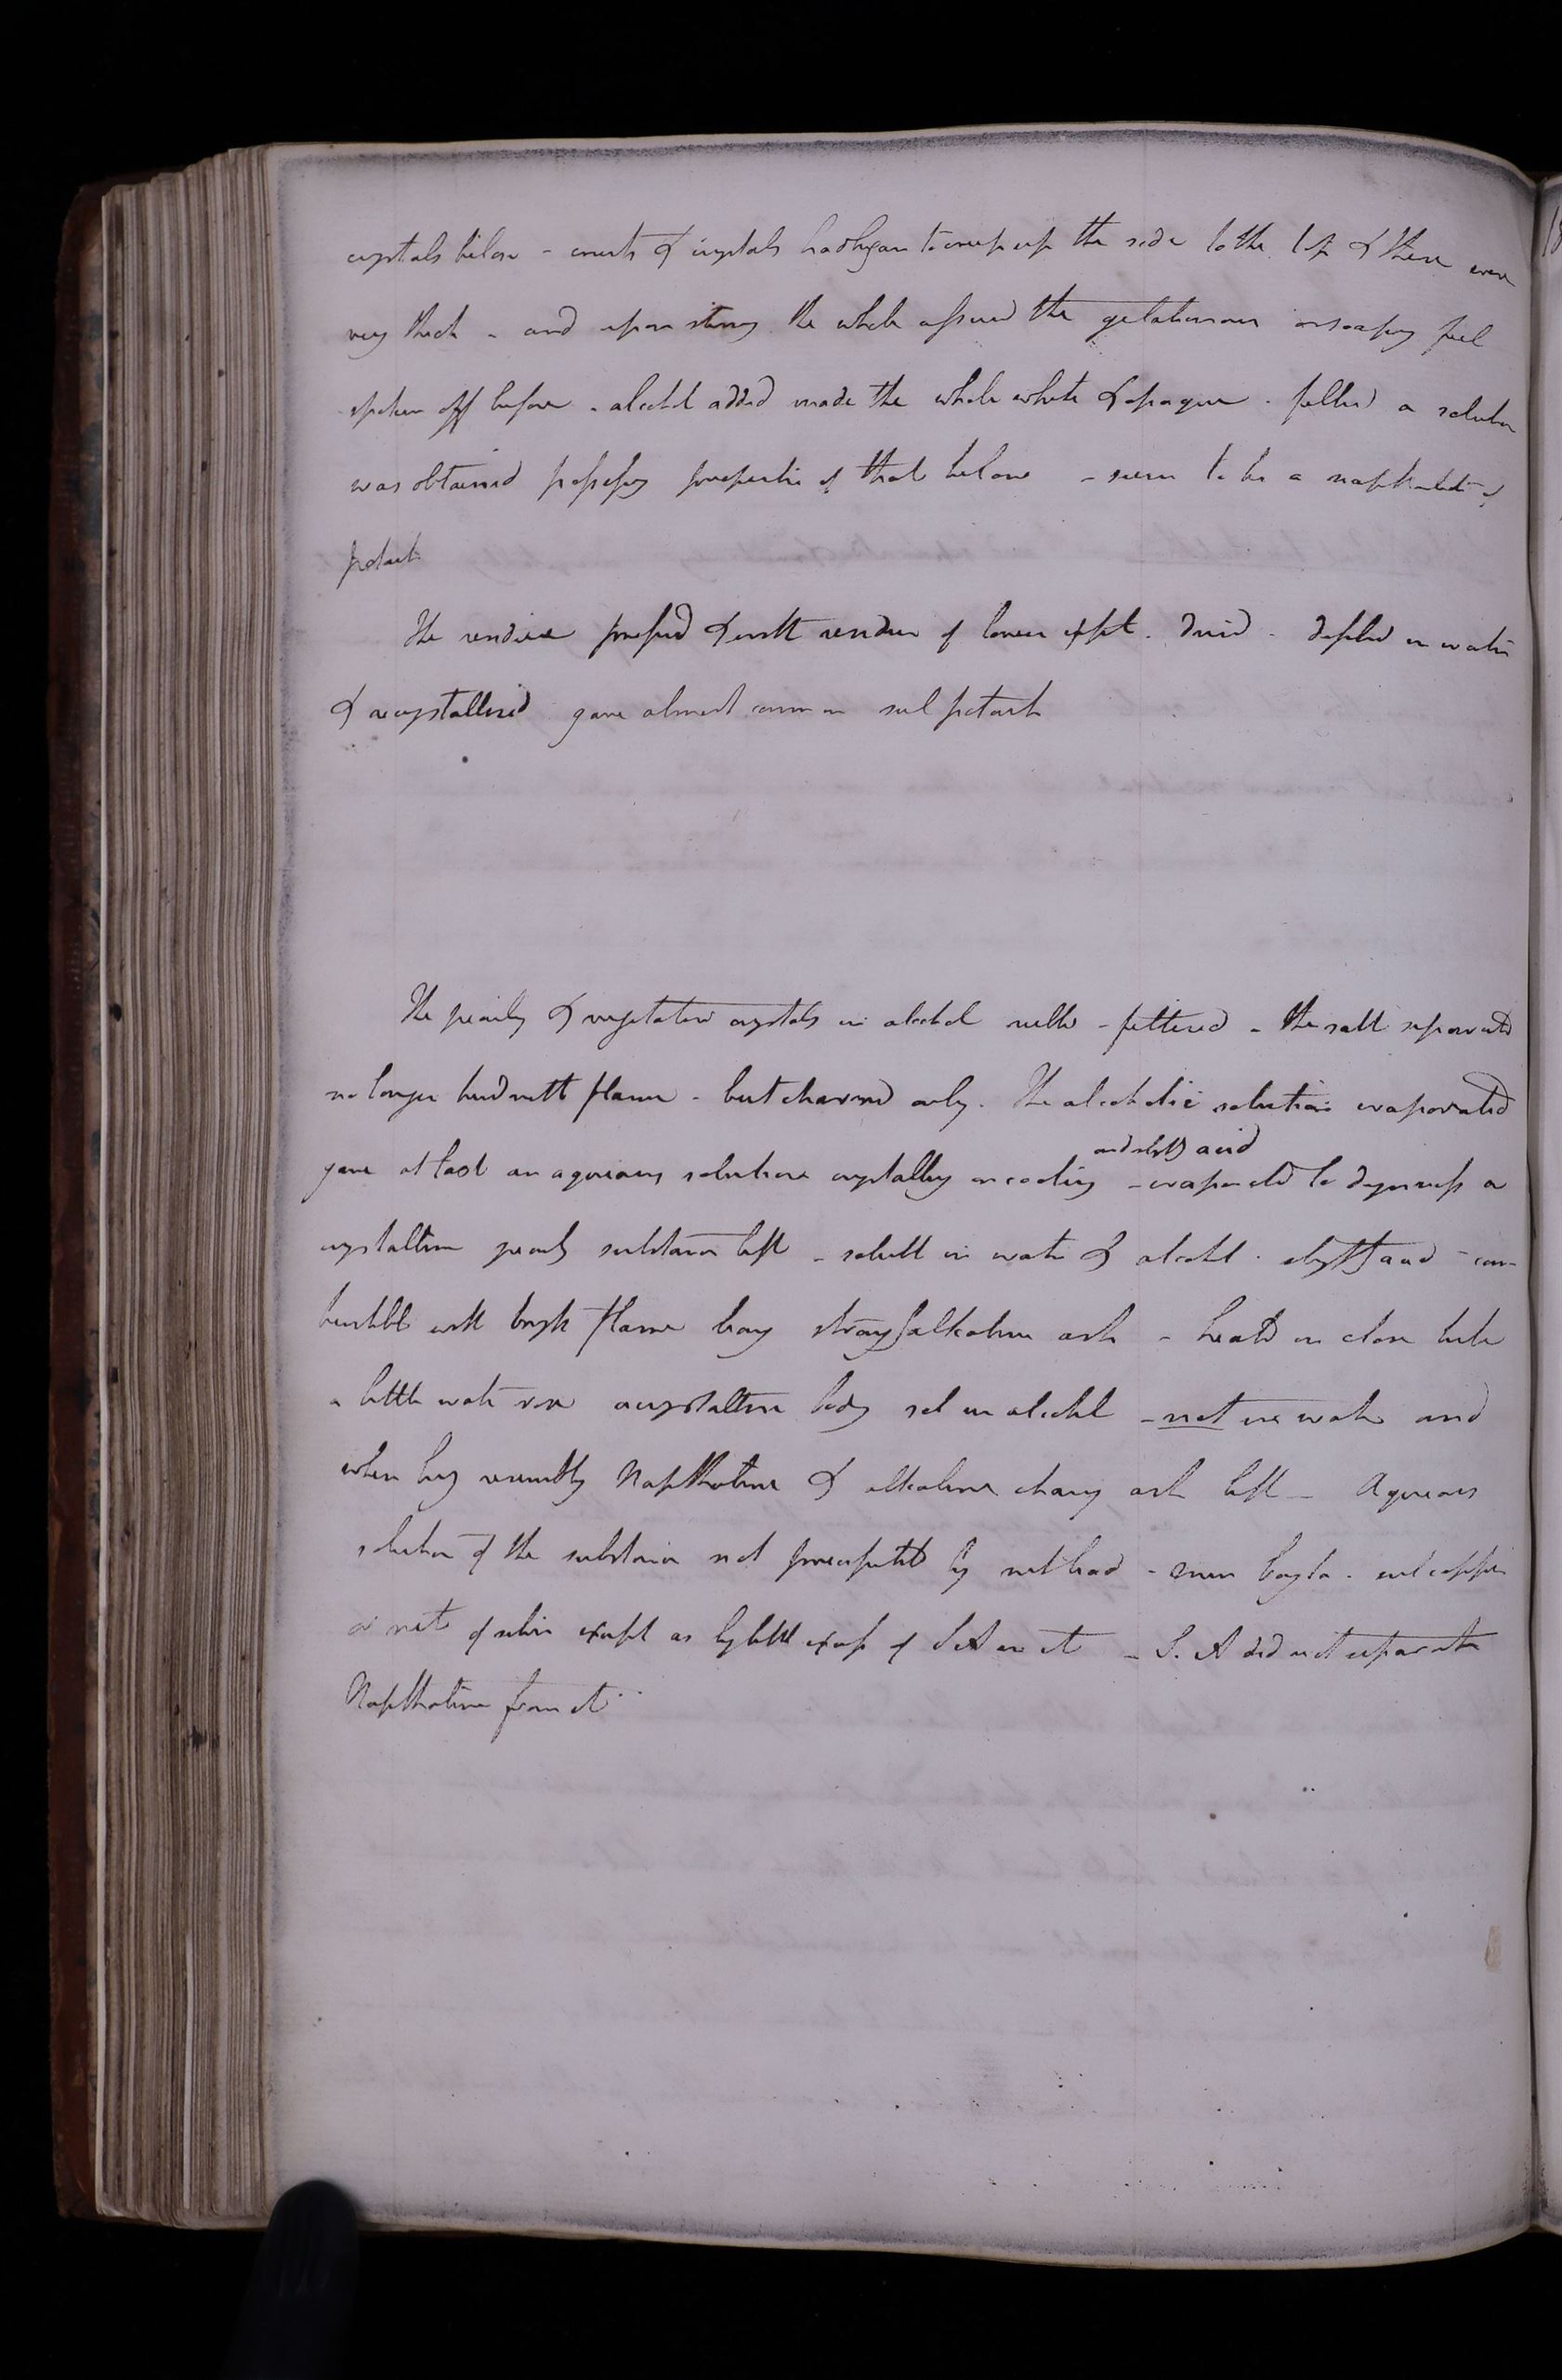 crystals below - crusts of crystals had begun to creep up the side to the top & these were
very thick - and upon stirring the whole assumed the gelatinous or soapy feel
spoken off before - alcohol added made the whole white & opaque - filtered a solution
was obtained possessing properties of that below - seems to be a napthalate of
potash
The residue pressed & with residue of lower expt. dried - dissolved in water
& recrystallized gave almost common sul potash
The pearly & vegetative crystals in alcohol - filtered - the salt separated
no longer burnd with flame - but charred only. The alcoholic solution evaporated
and slightly acid
gave at last an aqueous solution crystallizing on cooling - evaporated to dryness a
crystalline pearly substance left - soluble in water & alcohol - slightly acid - com-
bustible with bright flame leaving strongly alkaline ash - heated in close tube
a little water rose a crystalline body sol in alcohol - not in water and
when burning resembling Napthaline & alkaline charry ash left - Aqueous
solution of the substance not precipitated by nit lead - mur baryta - sul copper
or nit of silver except as by little excess of S A in it - S. A did not separate
Napthaline from it